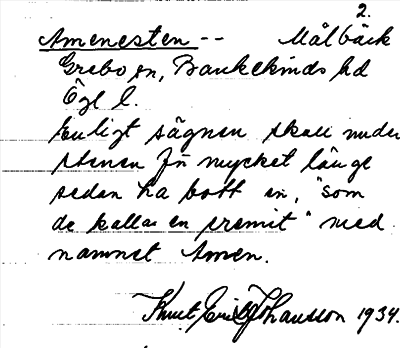 2.
Amenesten -- Målbäck
Grebo sn, Bankekinds hd
Ögl l.
Enligt sägnen skall under
stenen för mycket länge
sedan ha bott en, "som
de kallar en eremit" med
namnet Amen.
Knut Erik Johansson 1934.